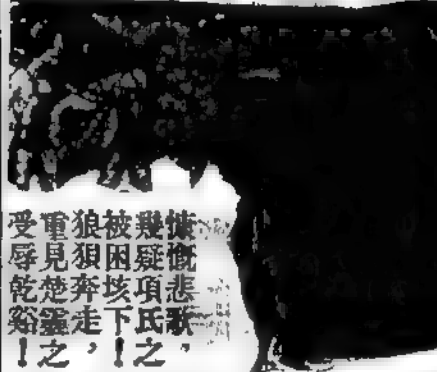 慷慨悲歌，
幾疑項氏之
被困垓下！
狼狽奔走，
重見楚靈之
受辱乾谿！